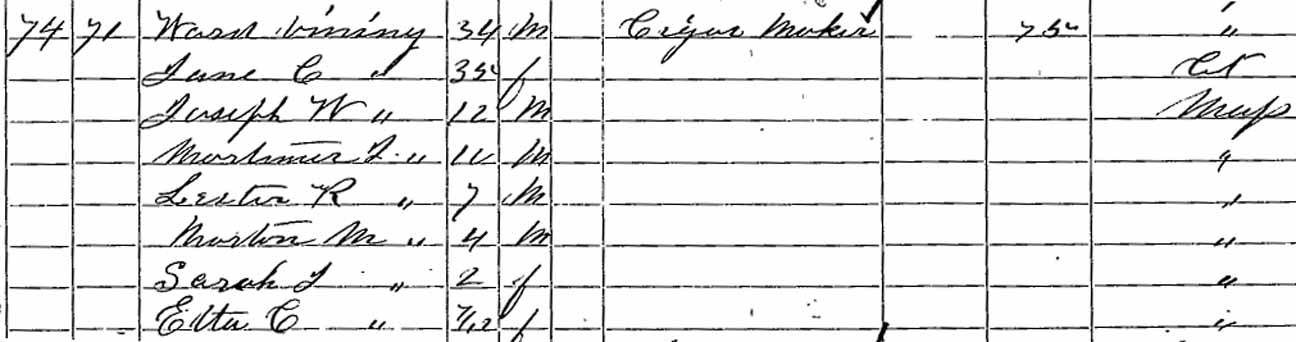 74 71 Ward Vining 34 M Cigar Maker 75 "
Jane C " 35 f Ct
Joseph W " 12 M Mass
Mortimer J. " 11 M "
Lester R " 7 M "
Morton M " 4 M "
Sarah J " 2 f "
Etta C " 7/12 f "